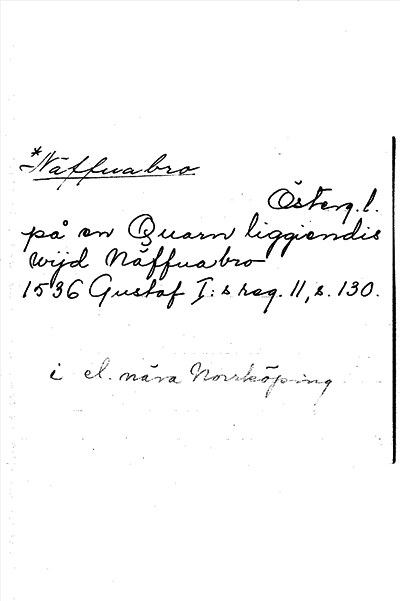 *Näffuabro
Österg.l.
på en Quarn liggiendis
wijd Näffuabro
1536 Gustaf I:s reg. 11, s. 130.
i el. nära Norrköping